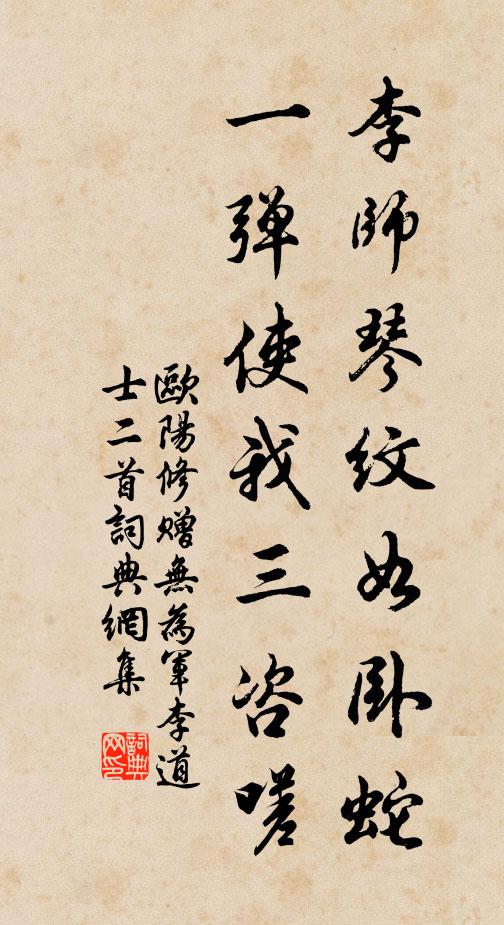 李師琴紋如臥蛇
一弹使我三咨嗟
歐陽修贈無為軍李道
士二首詞典網集
詞典
网印